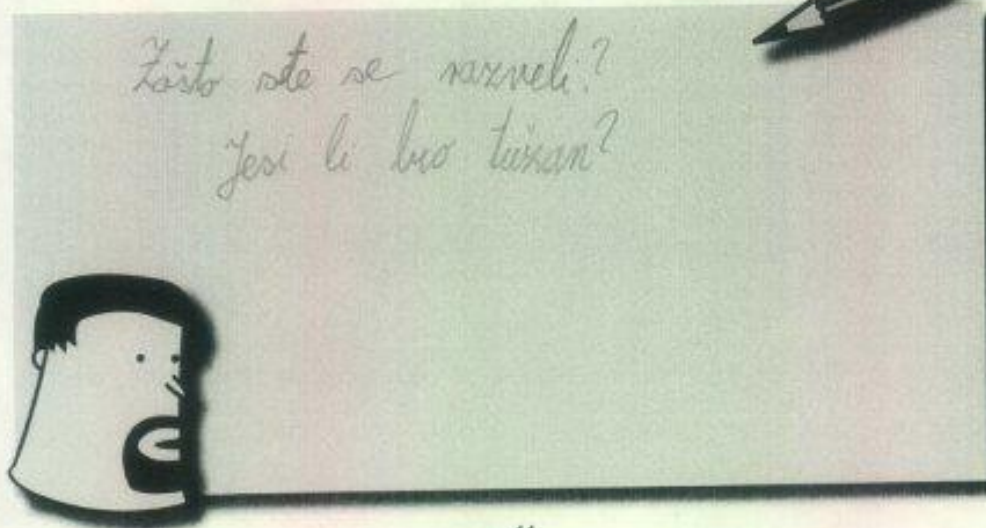 Zašto ste se razveli?
Jesi li bio tužan?